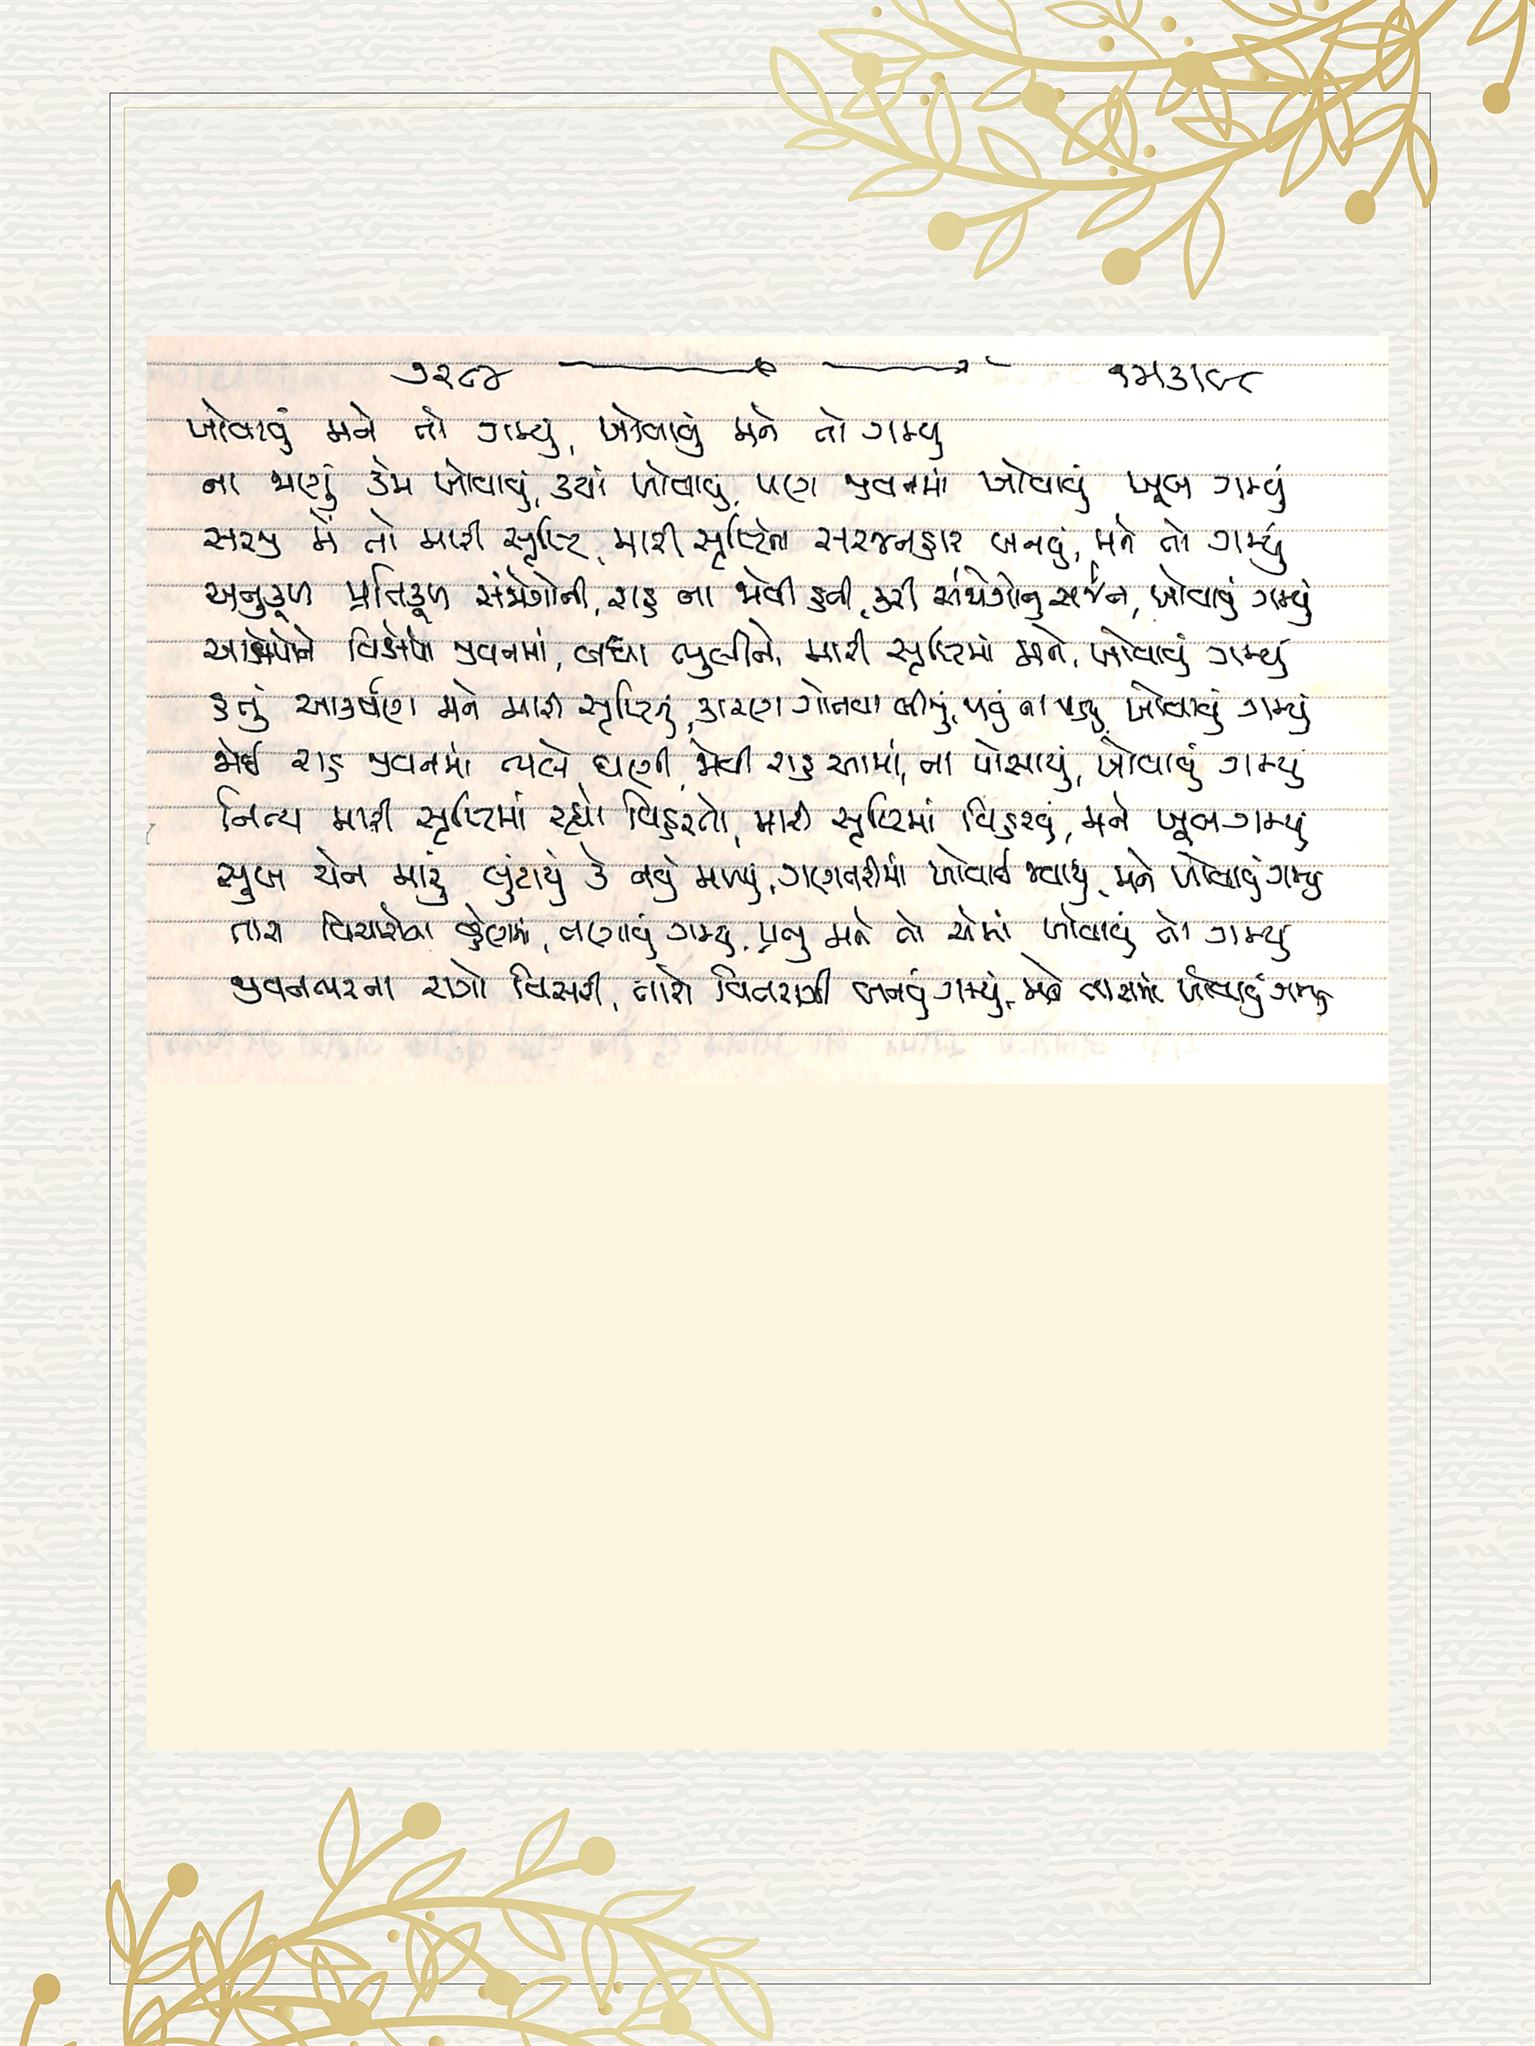 ૭૨૮૪
ખોવાવું મને તો ગમ્યું, ખોવાવું મને તો ગમ્યું
ના જાણું કેમ ખોવાવું, ક્યાં ખોવાવું, પણ જીવનમાં ખોવાવું ખૂબ ગમ્યું
સરજી મેં તો મારી સૃષ્ટિ, મારી સૃષ્ટિના સરજનહાર બનવું, મને તો ગમ્યું
અનુકૂળ પ્રતિકૂળ સંજોગોની, રાહ ના જોવી હતી, કરી સંજોગોનું સર્જન, ખોવાવું ગમ્યું
જીવનમાં, બધા ભુલીને, મારી સૃષ્ટિમાં મને, ખોવાવું ગમ્યું
હતું આકર્ષણ મને મારી સૃષ્ટિનું, કારણ ગોતવા બીજું, પડ્યું, ખોવાવું ગમ્યું
જોઈ રાહ જીવનમાં ભલે ઘણી, જોવી રાહ આમાં, ના પોસાયું, ખોવાવું ગમ્યું
નિત્ય મારી સૃષ્ટિમાં રહ્યો વિહરતો, મારી સૃષ્ટિમાં વિહરવું, મને ખૂબ ગમ્યું
સુખ ચેન મારું લુંટાયું કે નવું મળ્યું, ગણતરીમાં ખોવાઈ જવાયું, મને ખોવાવું ગમ્યું
તારા વિચારોના વ્હેણમાં, તણાવું ગમ્યું, પ્રભુ મને તો એમાં ખોવાવું તો ગમ્યું
જીવનભરના રાગો વિસરી, તારો વિતરાગી બનવું ગમ્યું, મને તારામાં ખોવાવું ગમ્યું